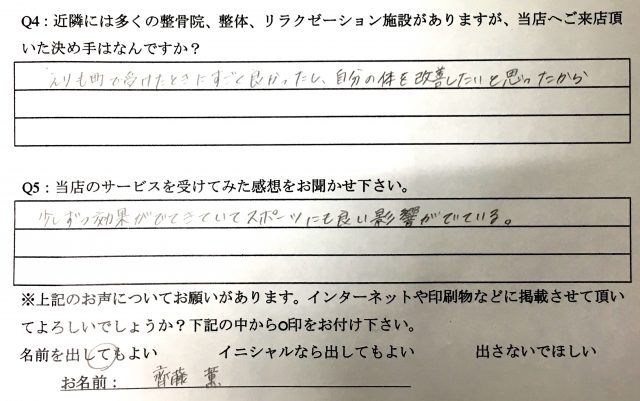 Q4：近隣には多くの整骨院、整体、リラクゼーション施設がありますが、当店へご来店頂
いた決め手はなんですか？
えりも町で受けたときにすごく良かったし、自分の体を改善したいと思ったから
Q5：当店のサービスを受けてみた感想をお聞かせ下さい。
少しずつ効果がでてきていてスポーツにも良い影響がでている。
※上記のお声についてお願いがあります。インターネットや印刷物などに掲載させて頂い
てよろしいでしょうか？下記の中から○印をお付け下さい。
名前を出してもよい　イニシャルなら出してもよい　出さないでほしい
お名前： 齊藤 薫